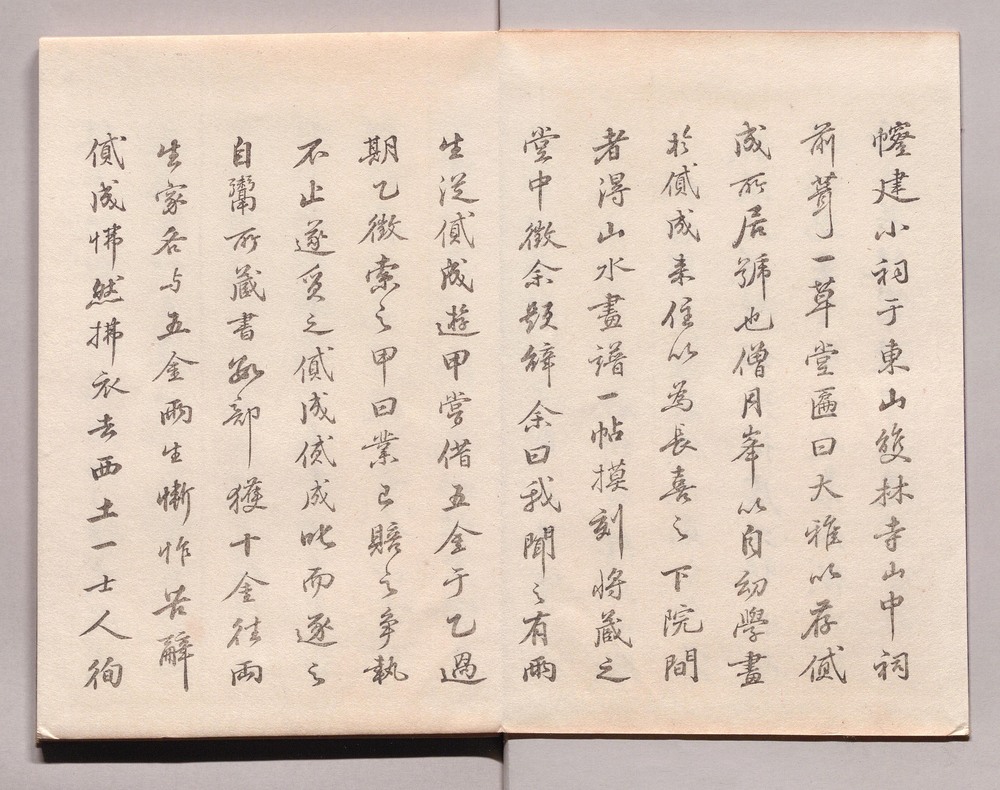 建小祠于東山雙林寺山中祠
前葺一草堂匾曰大雅以存貸
成所居號也僧月峯以自幼學畫
於貸成来住以為長喜之下院間
者得山水畫譜一帖摸刻将蔵之
堂中徵余題辞余曰我聞之有兩
生従貸成遊甲嘗借五金于乙過
期乙徵索之甲曰業已賠之争執
不止遂質之貸成貸成叱而逐之
自鬻所蔵書數部獲十金往両
生家各与五金兩生慚怍苦辭
貸成怫然拂衣去西土一士人徇